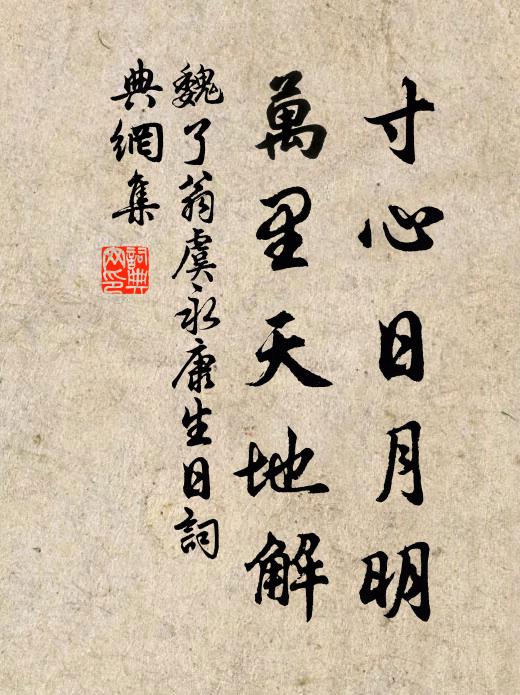 寸心日月明
萬里天地解
魏了翁虞永康生日詞
典網集
詞典網印